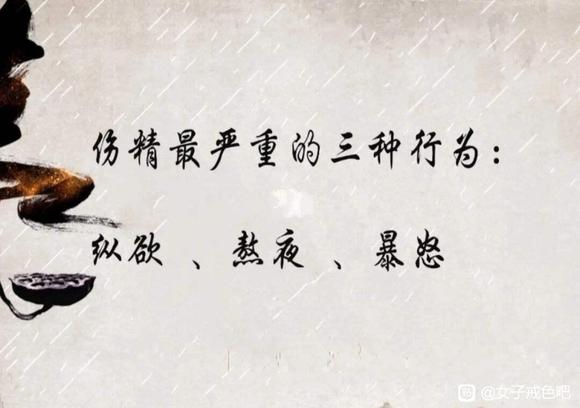 伤精最严重的三种行为：
纵欲 、熬夜 、暴怒
@女子戒色吧